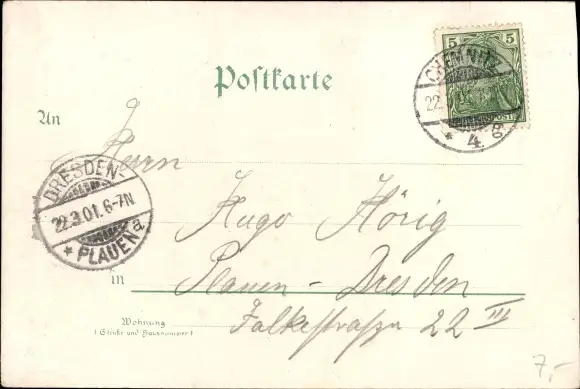 Postkarte
5 5
CHEMNITZ
22.
* 4.
An
Herrn
DRESDEN-
22.3.01.6-7N
* PLAUEN a
Hugo Hörig
in Plauen - Dresden
Wohnung
(Straße und Hausnummer)
Falkestraße 22 III
7,-